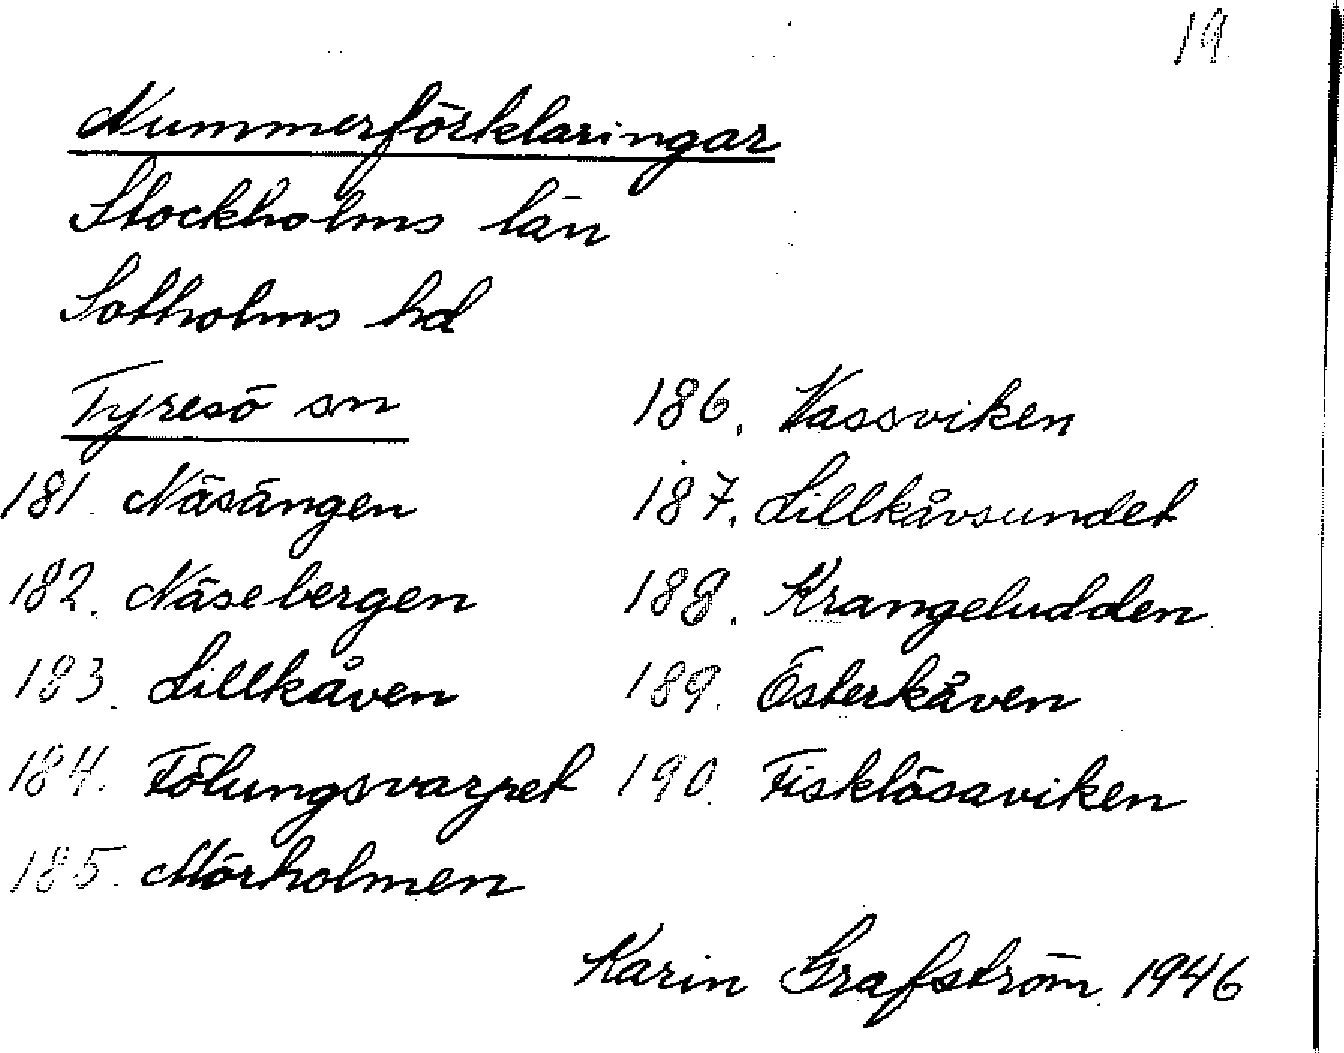 19
Nummerförklaringar
Stockholms län
Sotholms hd
Tyresö sn
181. Näsängen
182. Näsebergen
183. Lillkåven
184. Fölungsvarpet
185. Mörholmen
186. Vassviken
187. Lillkåvsundet
188. Krangeludden
189. Österkåven
190. Fisklösaviken
Karin Grafström 1946